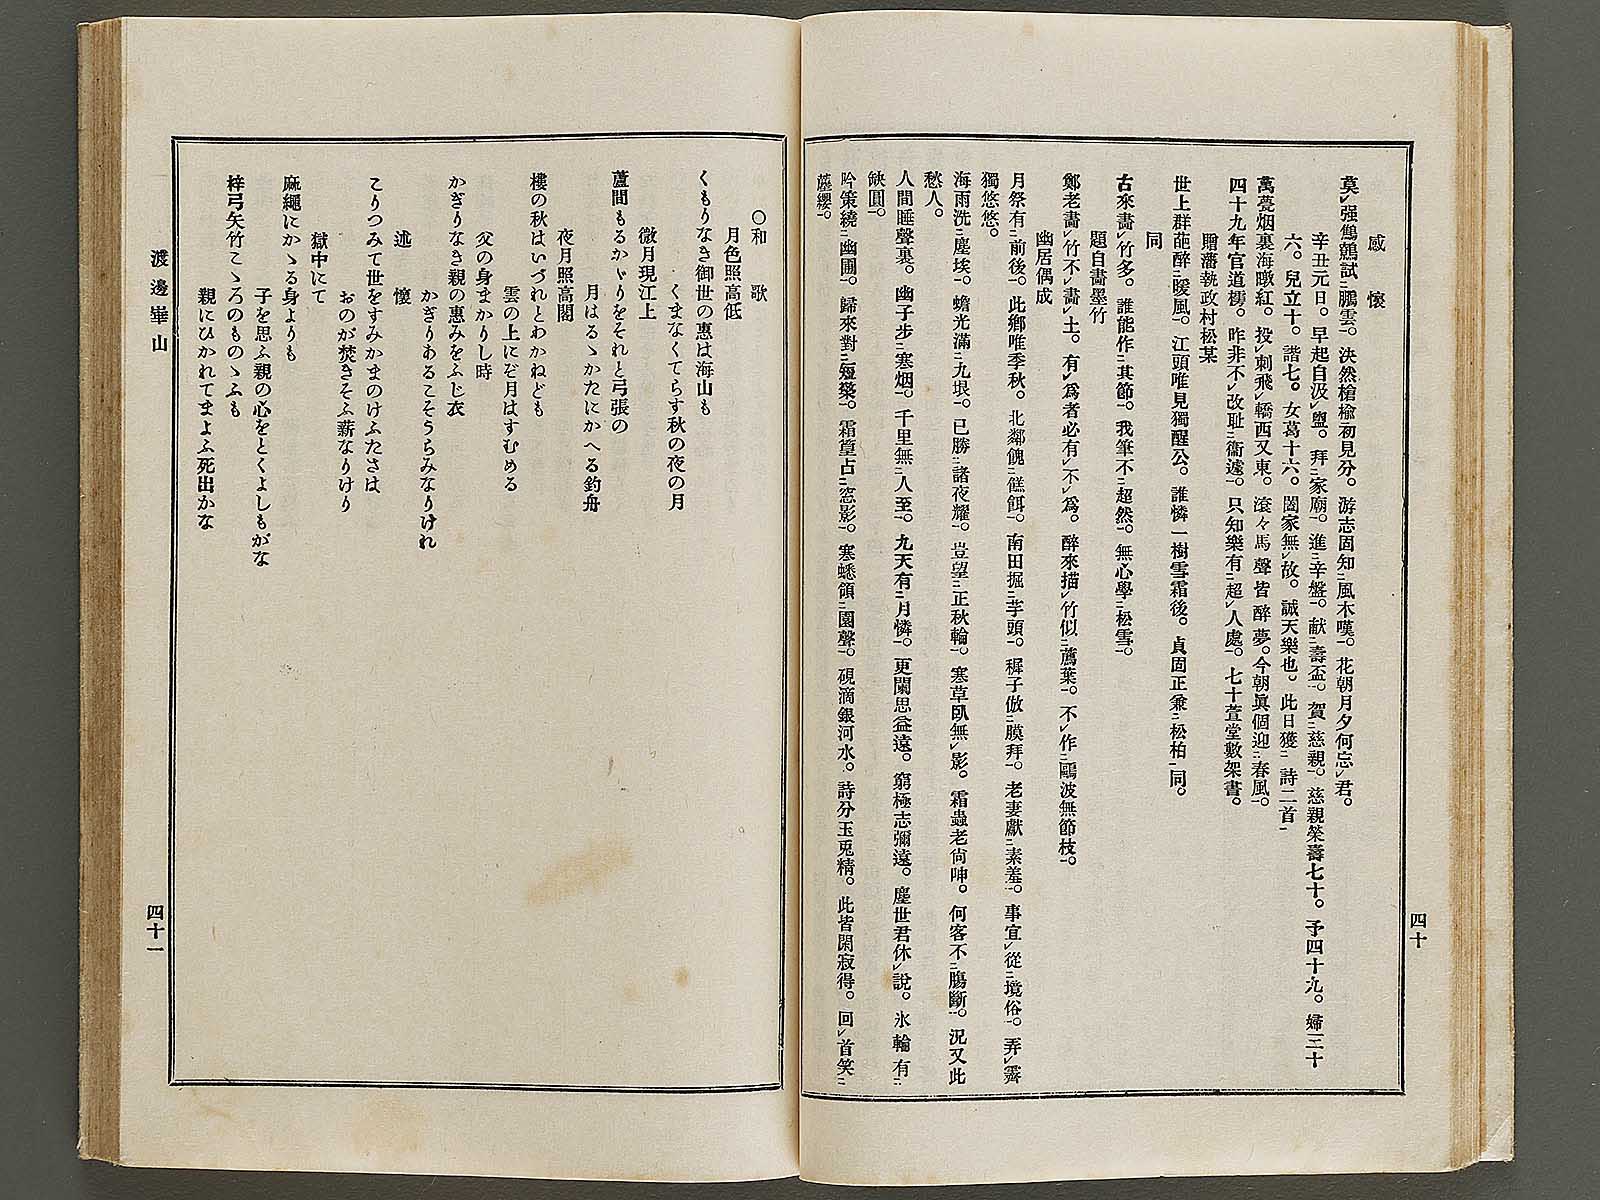 感懷
莫㆑强鷦鷯試㆓鵬雲㆒。決然槍楡初見分。游志固知㆓風木嘆㆒。花朝月夕何忘㆑君。
辛丑元日。早起自汲㆑盥。拜㆓家廟㆒。進㆓辛盤㆒。献㆓壽盃㆒。賀㆓慈親㆒。慈親榮壽七十。予四十九。婦三十
六。兒立十。諧七。女葛十六。闔家無㆑故。誠天樂也。此日獲㆓詩二首㆒
萬甍烟裏海暾紅。投㆑刺飛㆑轎西又東。滾々馬聲皆醉夢。今朝眞個迎㆓春風㆒。
四十九年官道樗。昨非不㆑改耻㆓衞蘧㆒。只知樂有㆓超㆑人處㆒。七十萱堂數架書。
贈藩執政村松某
世上群葩醉㆓暖風㆒。江頭唯見獨醒公。誰憐一樹雪霜後。貞固正兼㆓松柏㆒同。
同
古來畵㆑竹多。誰能作㆓其節㆒。我筆不㆓超然㆒。無心學㆓松雪㆒。
題自畵墨竹
鄭老畵㆑竹不㆑畵㆑土。有㆑爲者必有㆑不㆑爲。醉來描㆑竹似㆓蔿葉㆒。不㆑作㆓鷗波無節枝㆒。
幽居偶成
月祭有㆓前後㆒。此鄕唯季秋。北鄰餽㆓餻餌㆒。南田掘㆓芋頭㆒。穉子倣㆓膜拜㆒。老妻獻㆓素羞㆒。事宜㆑從㆓境俗㆒。弄㆑霽
獨悠悠。
海雨洗㆓塵埃㆒。蟾光滿㆓九垠㆒。已勝㆓諸夜耀㆒。豈望㆓正秋輪㆒。寒草臥無㆑影。霜蟲老尙呻。何客不㆓膓斷㆒。況又此
愁人。
人間睡聲裏。幽子步㆓寒烟㆒。千里無㆓人至㆒。九天有㆓月憐㆒。更闌思益遠。窮極志彌遠。塵世君休㆑說。氷輪有㆓
缺圓㆒。
吟策繞㆓幽圃㆒。歸來對㆓短檠㆒。霜篁占㆓窓影㆒。寒蟋領㆓園聲㆒。硯滴銀河水。詩分玉兎精。此皆閑寂得。回㆑首笑㆓
塵纓㆒。
四十
○和歌
月色照高低
くもりなき御世の惠は海山も
くまなくてらす秋の夜の月
微月現江上
蘆間もるかゞりをそれと弓張の
月はるゝかたにかへる釣舟
夜月照高閣
樓の秋はいづれとわかねども
雲の上にぞ月はすむめる
父の身まかりし時
かぎりなき親の惠みをふじ衣
かぎりあるこそうらみなりけれ
述懷
こりつみて世をすみかまのけふたさは
おのが焚きそふ薪なりけり
獄中にて
麻繩にかゝる身よりも
子を思ふ親の心をとくよしもがな
梓弓矢竹こゝろのものゝふも
親にひかれてまよふ死出かな
渡邊崋山
四十一